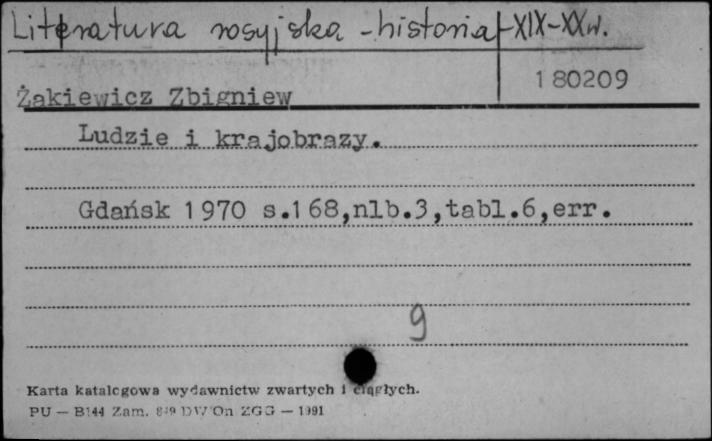 Literatura rosyjska - historia - XIX-XX w.
180209
Żakiewicz Zbigniew
Ludzie i krajobrazy.
Gdańsk 1970 s.168,nlb.3,tabl.6,err.
9
Karta katalogowa wydawnictw zwartych i ciągłych.
PU — B144 Zam. DW On ZGG — 1991